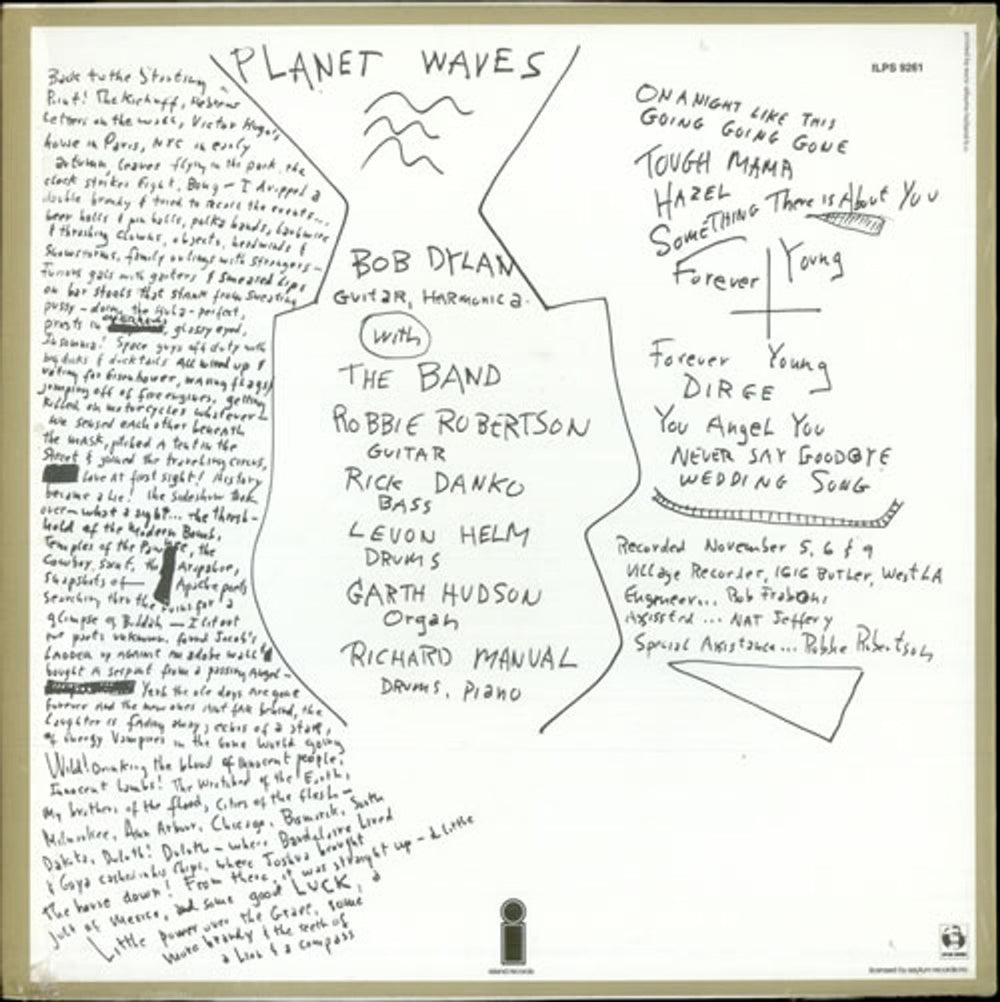 PLANET WAVES
Back to the Starting
Point! The Kickoff, Hebrew
Letters on the walls, Victor Hugo's
house in Paris, NYC in early
autumn, leaves flying in the park, the
clock strikes Eight, Bong — I dripped a
double brandy & tried to recall the events...
beer halls & pin balls, polka bands, barbwire
& thrashing clowns, objects, headwinds &
Snowstorms, family outings with strangers —
Furious gals with garters & smeared Lips
on bar stools that stank from sweating
pussy — doing the Hula — perfect,
priests in overhauls, glassy eyed,
Insomnia! Space guys off duty with
big dicks & ducktails All wired up &
voting for Eisenhower, waving flags,
jumping off of fire engines, getting
Killed on motorcycles whatever —
We sensed each other beneath
the mask, pitched a tent in the
Street & joined the traveling circus,
Love at first sight! History
became a Lie! the sideshow took
over — what a sight... the thresh-
hold of the Modern Bomb,
Temples of the Pawnee, the
Cowboy saint, the Arapahoe,
Snapshots of Apache poets
Searching thru the ruins for a
glimpse of Buddah — I lit out
for parts unknown, found Jacob's
Ladder up against an adobe wall &
bought A serpent from a passing Angel —
Yeah the ole days Are gone
forever And the new ones Aint far behind, the
Laughter is fading away, echos of a star,
of Energy Vampires in the Gone World going
Wild! Drinking the blood of innocent people,
Innocent Lambs! The Wretched of the Earth,
My brothers of the flood, Cities of the flesh —
Milwaukee, Ann Arbor, Chicago, Bismarck, South
Dakota, Duluth! Duluth — where Baudelaire Lived
& Goya cashed in his Chips, where Joshua brought
the house down! From there, it was straight up — a little
jolt of Mexico, and some good LUCK, a
Little power over the Grave, some
more brandy & the teeth of
a Lion & a compass
BOB DYLAN
GUITAR, HARMONICA.
with
THE BAND
ROBBIE ROBERTSON
GUITAR
RICK DANKO
BASS
LEVON HELM
DRUMS
GARTH HUDSON
Organ
RICHARD MANUAL
DRUMS, PIANO
ILPS 9261
ON A NIGHT LIKE THIS
GOING GOING GONE
TOUGH MAMA
HAZEL
SOMETHING There is About You
Forever Young
Forever Young
DIRGE
You Angel You
NEVER SAY GOODBYE
WEDDING SONG
Recorded November 5, 6 & 9
Village Recorder, 1616 Butler, West LA
Engeneer... Rob Fraboni
Assissted ... NAT Jeffery
Special Assistance... Robbie Robertson
island records
licensed by asylum records inc